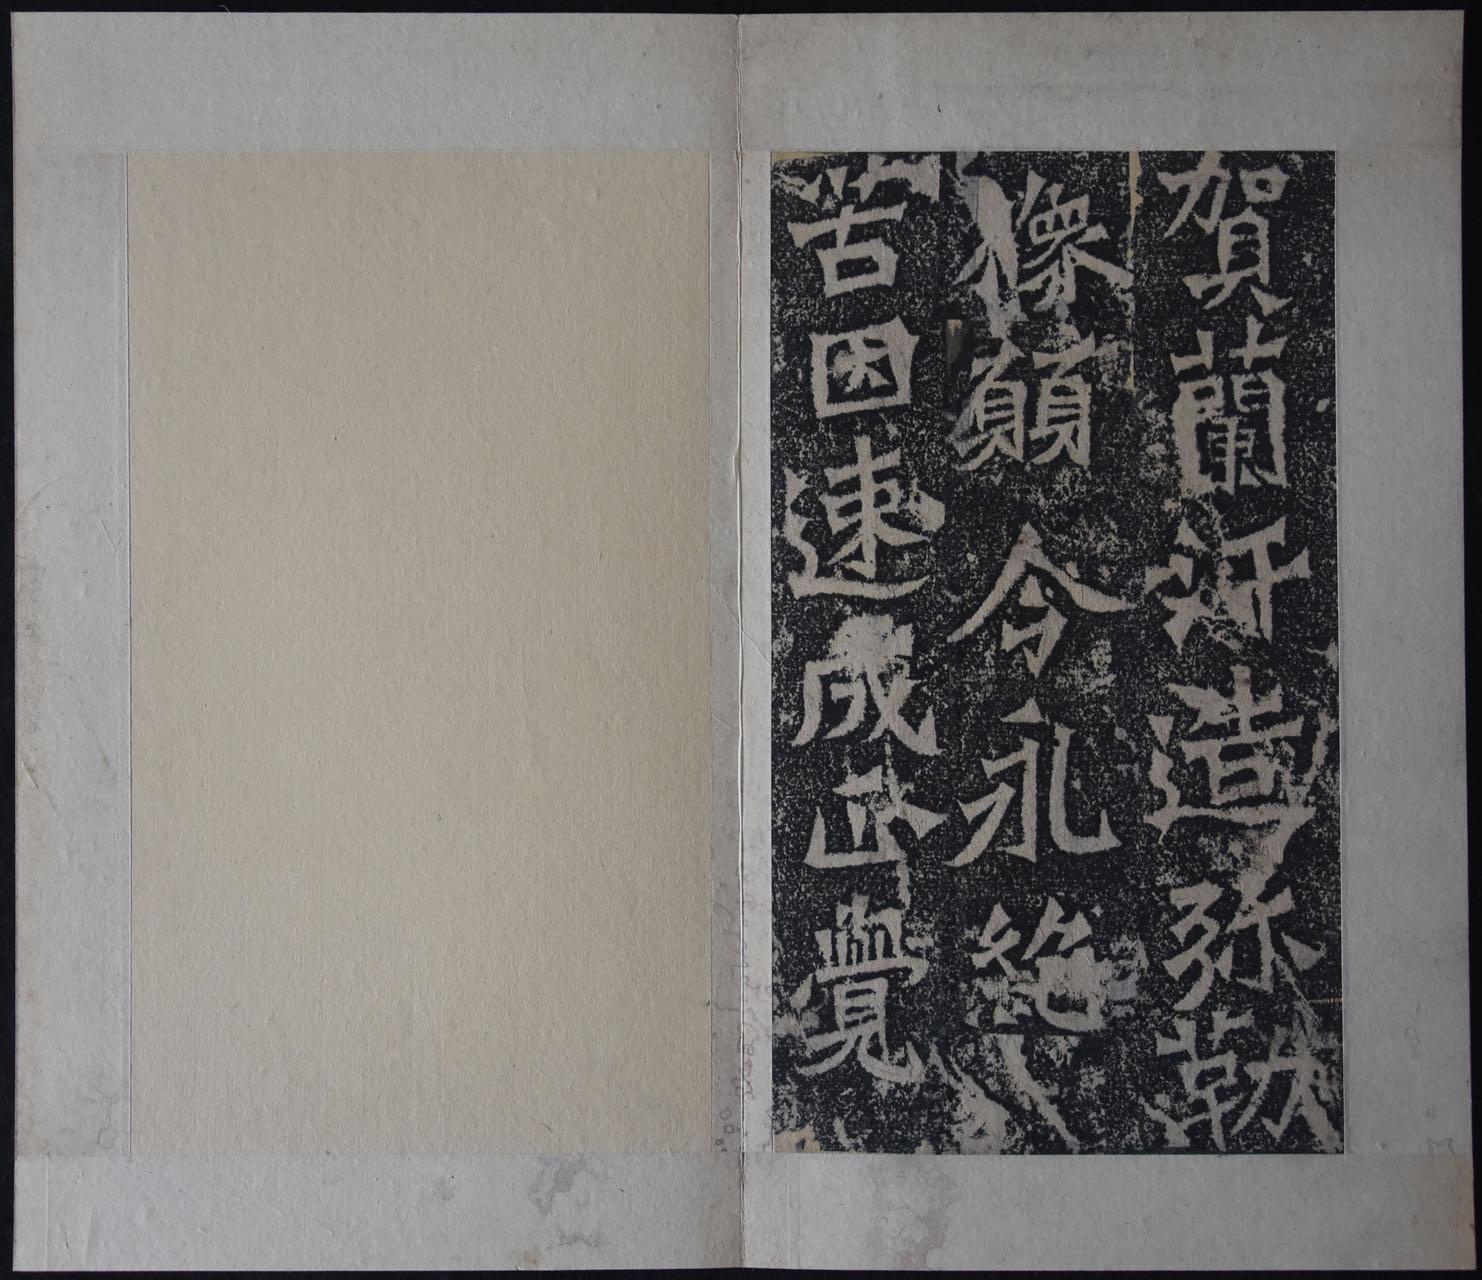 賀蘭汗造弥勒
像願令永絕
苦因速成正覺